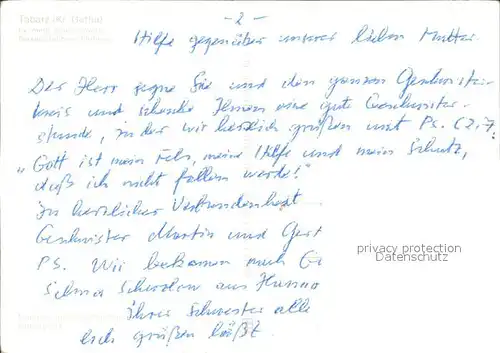 Tabarz (Kr. Gotha)
- 2 -
Hilfe gegenüber unserer lieben Mutter.
Der Herr segne Sie und den ganzen Geschwister-
kreis und schenke Ihnen eine gute Geschwister-
stunde, zu der wir herzlich grüßen mit Ps. 62,7:
„Gott ist mein Fels, meine Hilfe und mein Schutz,
daß ich nicht fallen werde!"
In herzlicher Verbundenheit
Geschwister Martin und Gert
PS. Wir bekamen auch
Selma aus
ihrer Schwester alle
herzlich grüßen läßt.
privacy protection
Datenschutz